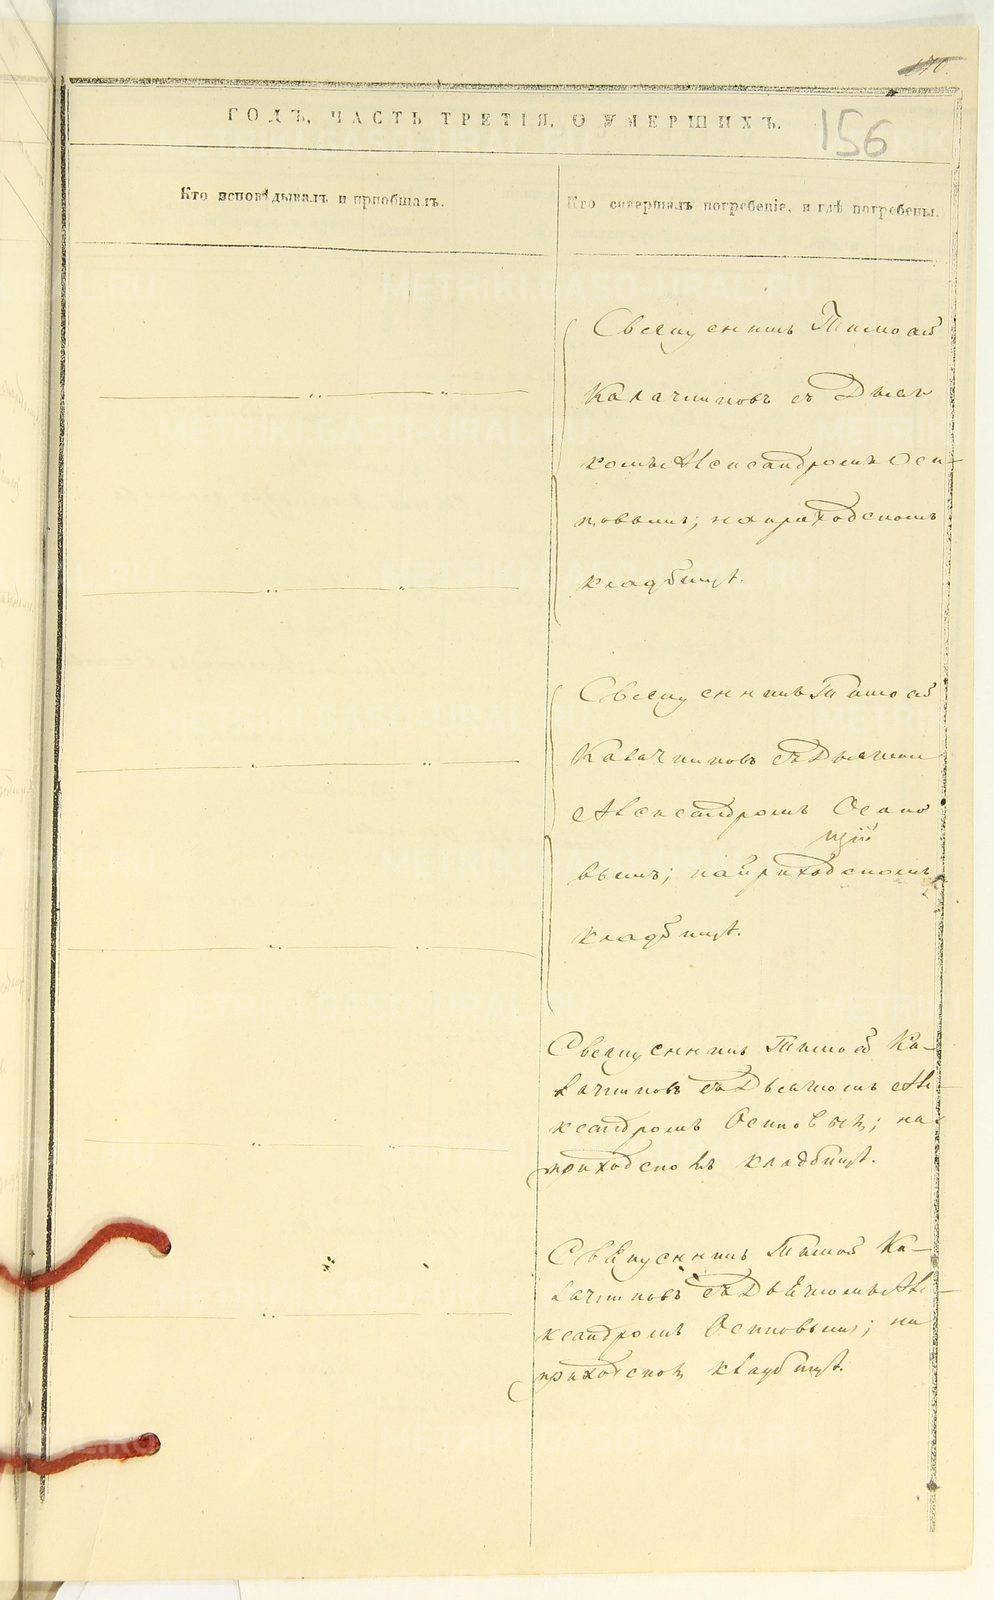 156
ГОДЪ, ЧАСТЬ ТРЕТІЯ, О УМЕРШИХЪ.
Кто исповѣдывалъ и пріобщалъ.
Кто совершалъ погребеніе, и гдѣ погребены.
Священникъ Тимоѳей
Калачниковъ съ Дьяч
комъ Александромъ Оси-
повымъ; на приходскомъ
кладбищѣ.
Священникъ Тимоѳей
Калачниковъ съ Дьячком
Александромъ Осипо
вымъ; на приходскомъ
кладбищѣ.
Священникъ Тимоѳей Ка-
лачниковъ съ Дьячкомъ Але-
ксандромъ Осиповым; на
приходскомъ кладбищѣ.
Священникъ Тимоѳей Ка-
лачниковъ съ Дьячкомъ Але-
ксандромъ Осиповымъ; на
приходском кладбищѣ.
METRIKI.GASO-URAL.RU